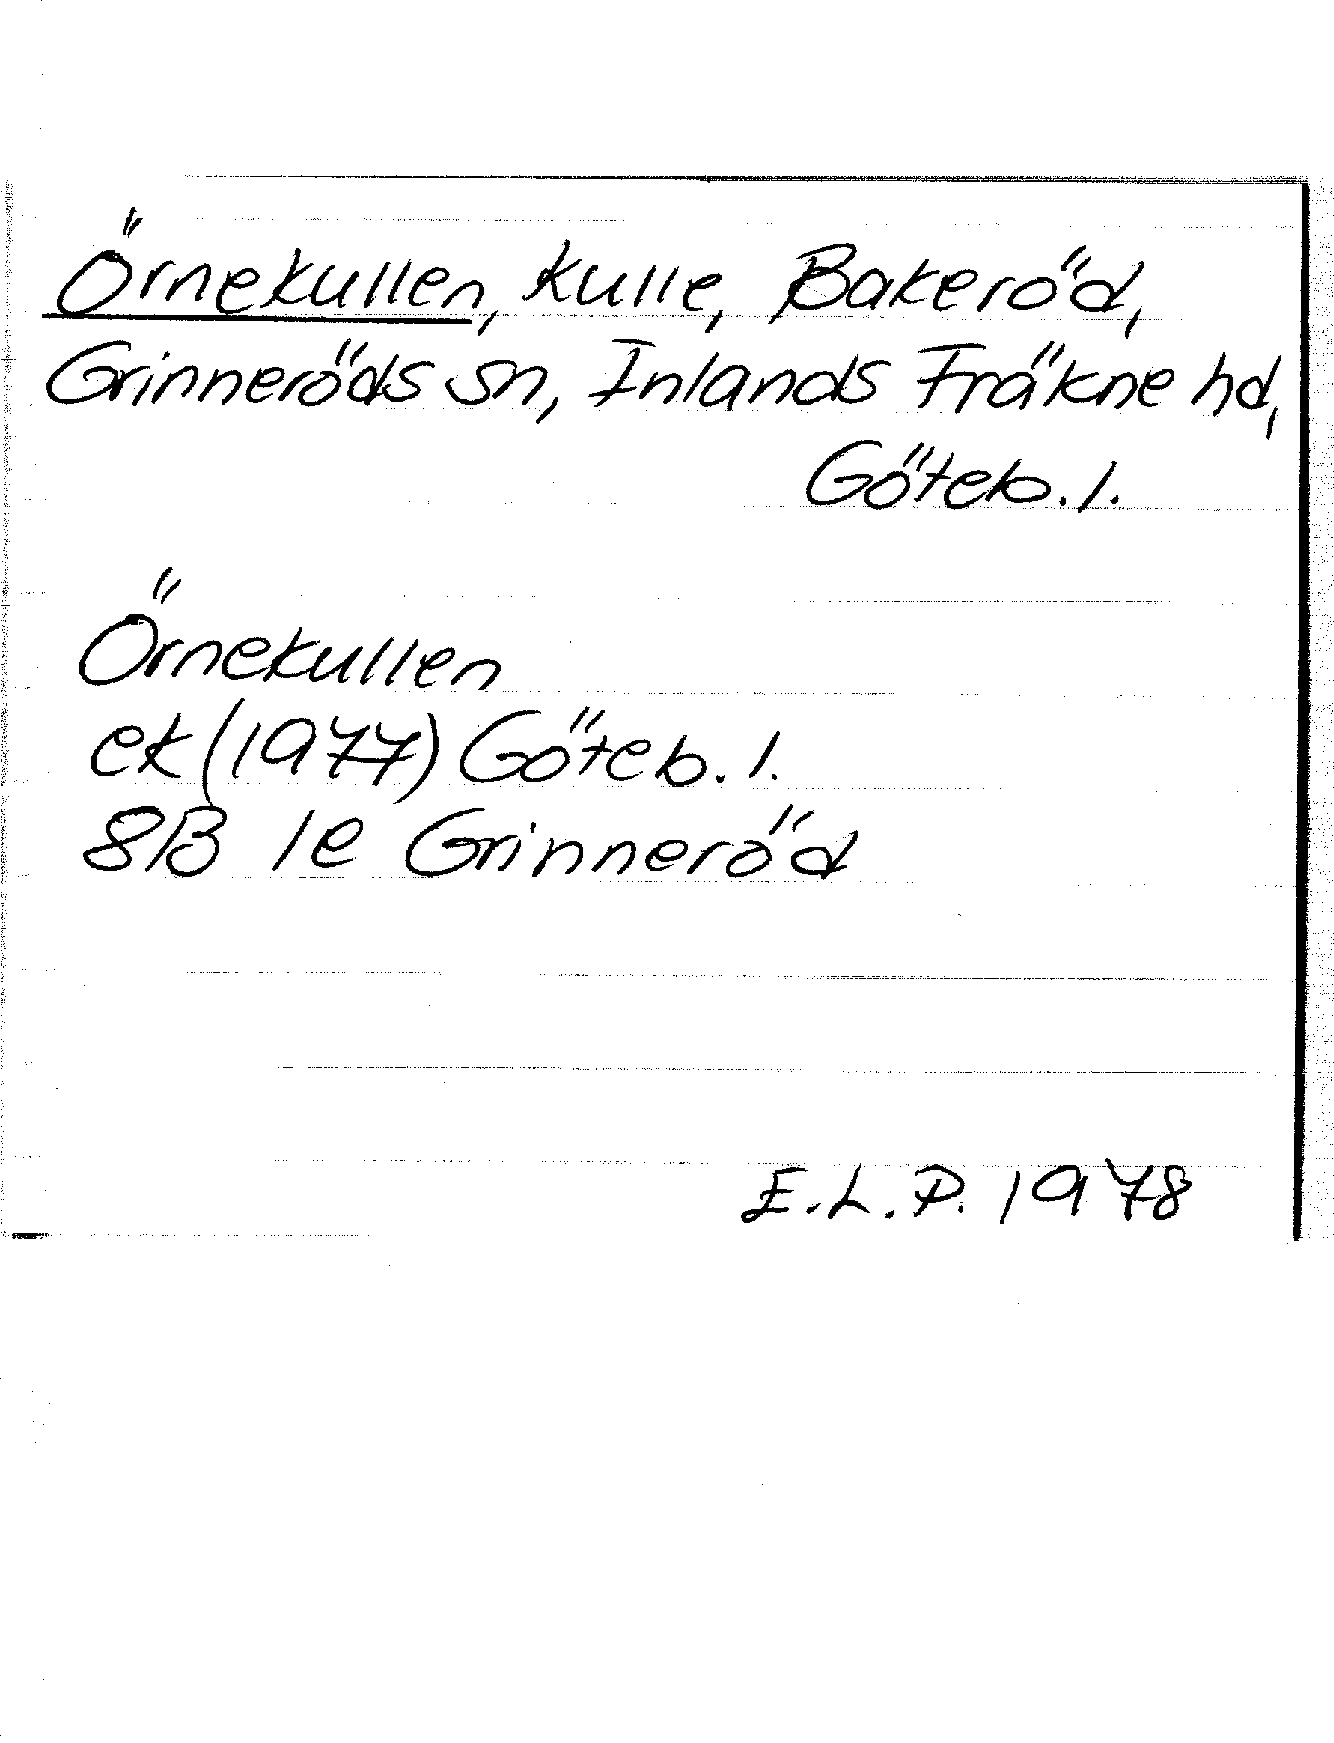 Örnekullen, kulle, Bakeröd,
Grinneröds sn, Inlands Fräkne hd,
Göteb. l.
Örnekullen
ek (1977) Göteb. l.
8B 1e Grinneröd
E.L.P. 1978